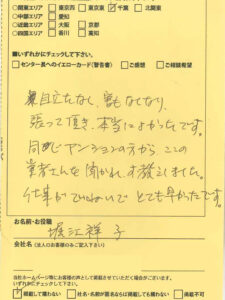 ○関東エリア □東京西 □東京東 ☑千葉 □北関東
○中部エリア □愛知
○近畿エリア □大阪 □京都
○四国エリア □香川 □高知
■いずれかにチェックして下さい。
□センター長へのイエローカード(警告書) □ご感想 □ご相談希望
目立たなく、
張って頂き、本当によかったです。
同じマンションの方から、この
業者さんを聞かれ、教えました。
仕事がていねいで とても早かったです。
お名前・お役職
堀江祥子
会社名(法人のお客様のみご記入下さい)
当社ホームページ等にお客様の声として掲載させていただく場合がございます。
いずれかにチェックして下さい。
☑掲載して構わない □社名・名前が匿名ならば掲載しても構わない □掲載不可